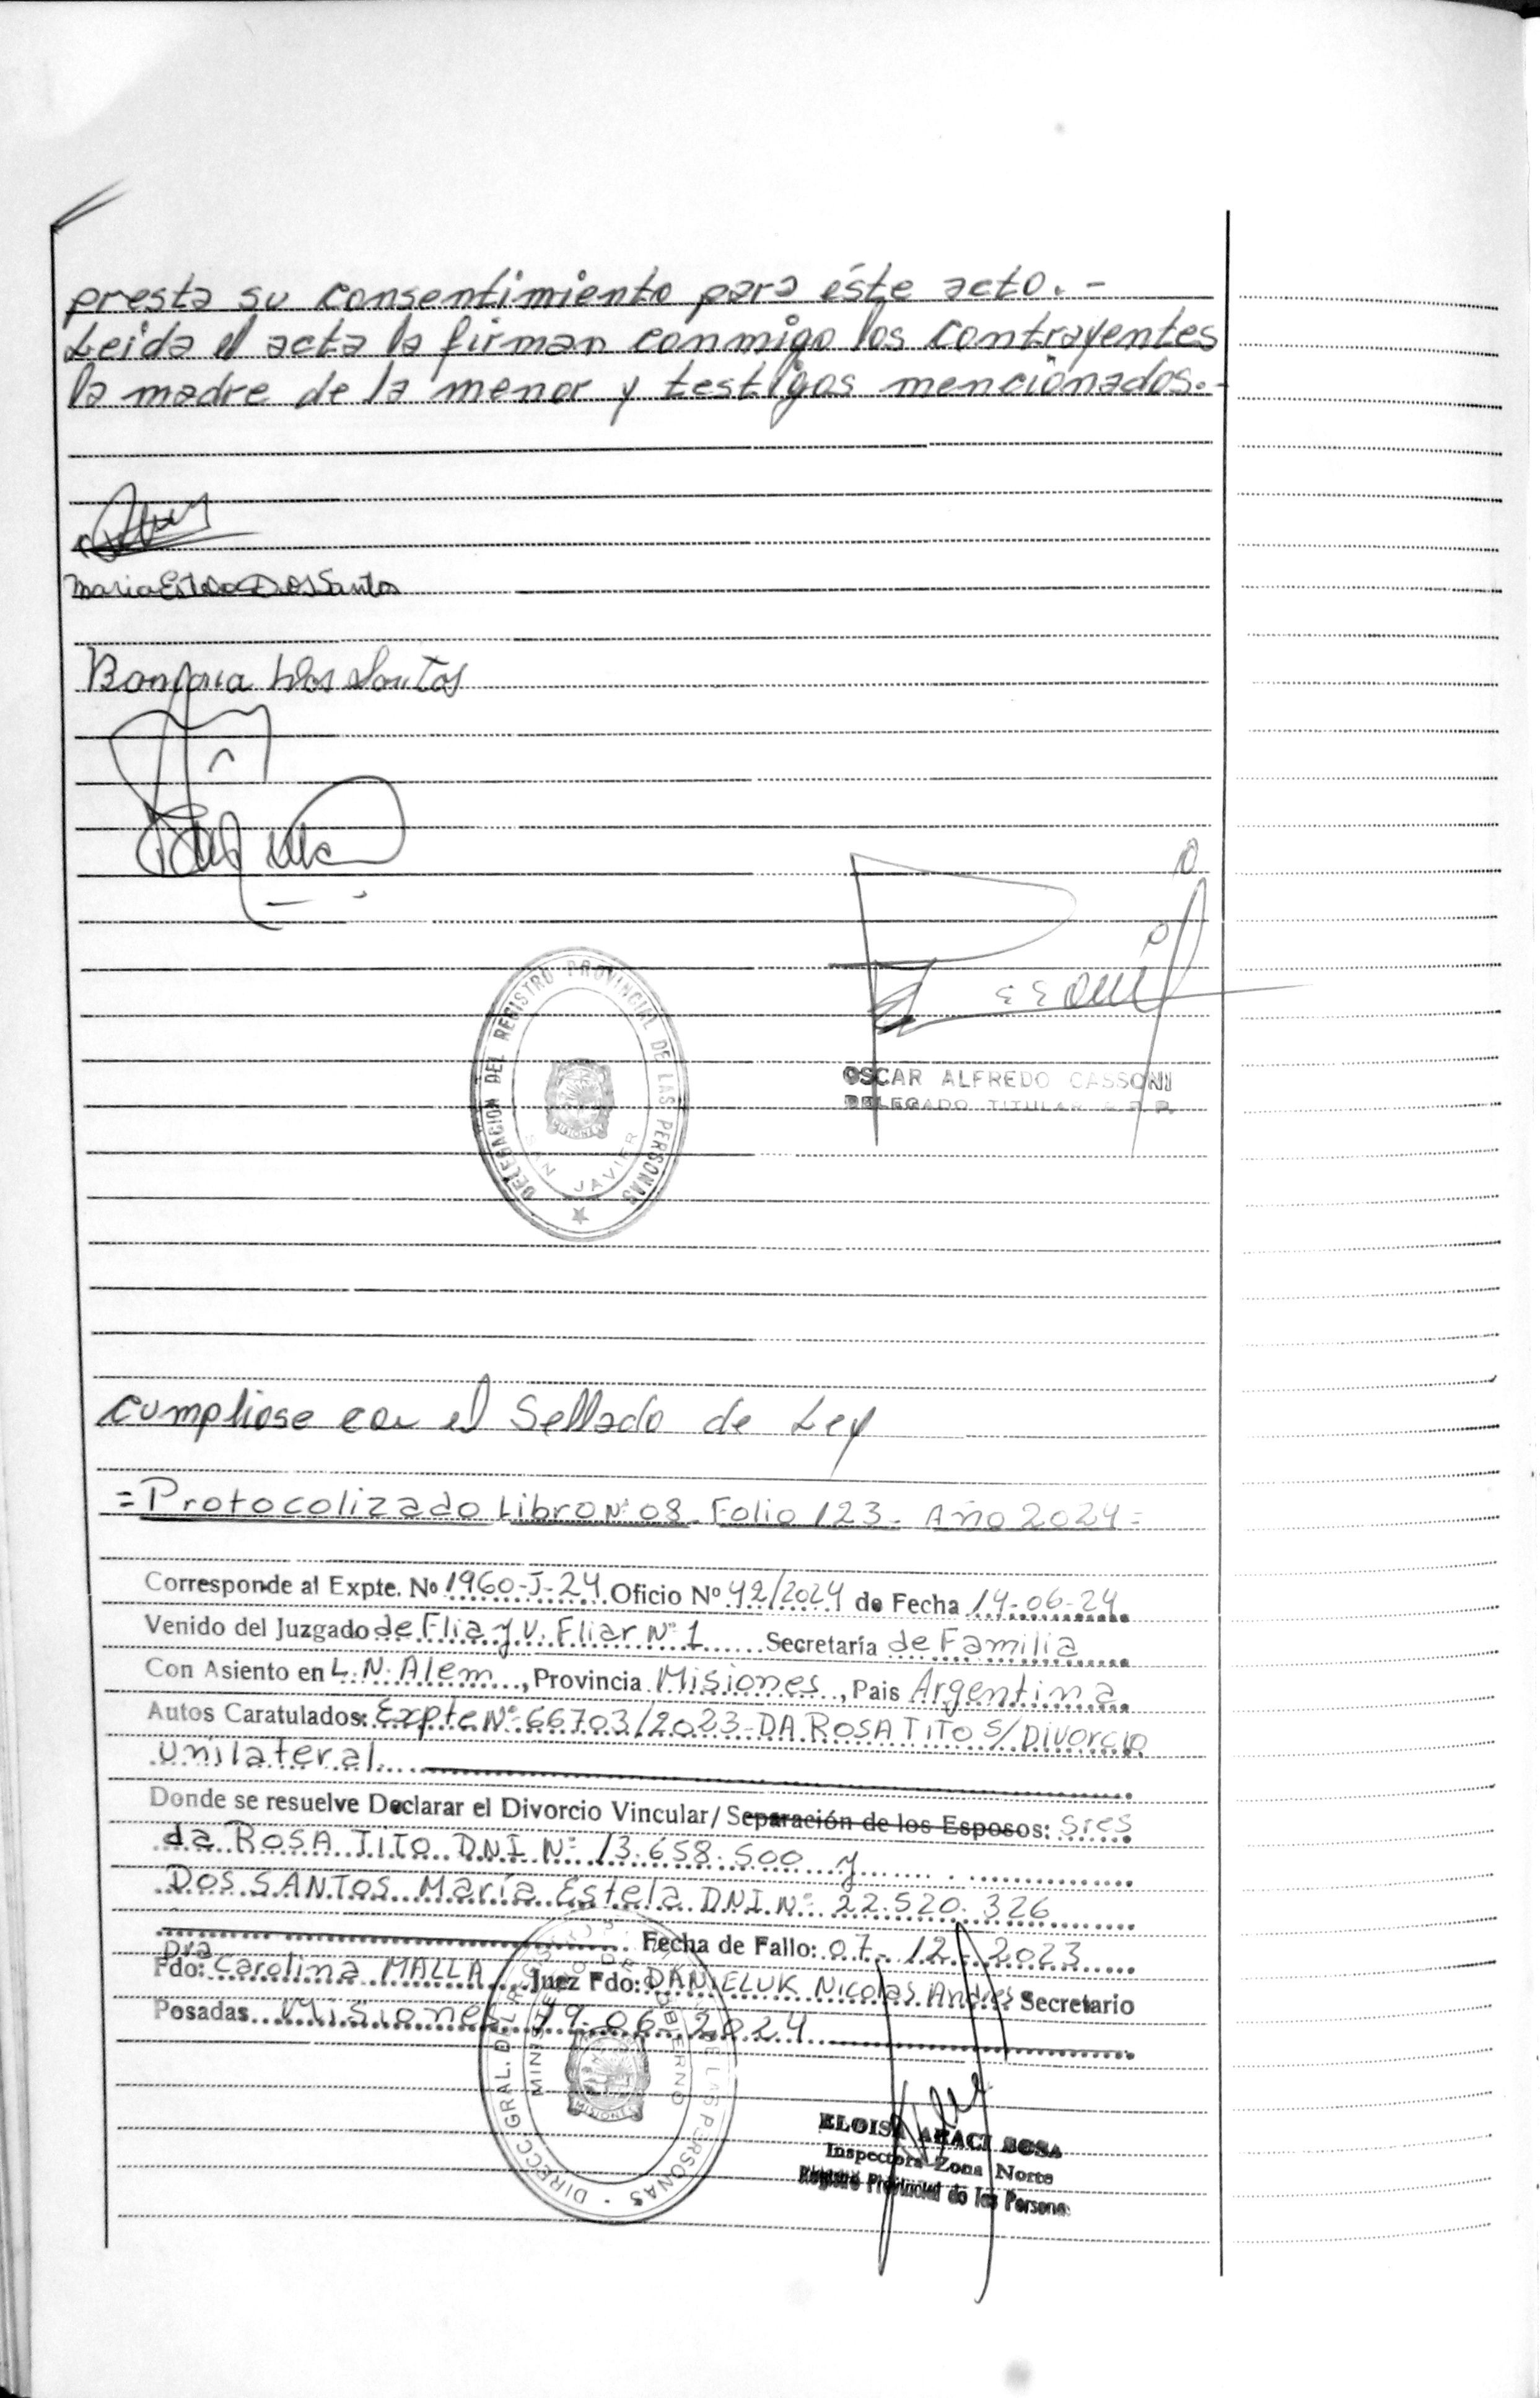 presta su consentimiento para éste acto.-
Leida el acta la firman conmigo los contrayentes
la madre de la menor y testigos mencionados.-
Maria Estela Dos Santos
Dos Santos
DELEGACION DEL REGISTRO PROVINCIAL DE LAS PERSONAS
MISIONES
SAN JAVIER
OSCAR ALFREDO CASSONI
DELEGADO TITULAR R.P.P.
cumpliose con el Sellado de Ley
=Protocolizado Libro Nº 08- Folio 123- Año 2024=
Corresponde al Expte. Nº 1960-J-24 Oficio Nº 42/2024 de Fecha 14-06-24
Venido del Juzgado de Flia y V. Fliar Nº 1 Secretaría de Familia
Con Asiento en L.N. Alem, Provincia Misiones, Pais Argentina
Autos Caratulados: Expte Nº 66703/2023-DA ROSA TITO S/Divorcio
Unilateral
Donde se resuelve Declarar el Divorcio Vincular/Separación de los Esposos: Sres
da ROSA TITO DNI Nº 13.658.500 y
DOS SANTOS María Estela DNI Nº 22.520.326
Fecha de Fallo: 07-12-2023
Dra
Fdo: Carolina MALLA Juez Fdo: DANIELUK Nicolas Andres Secretario
Posadas Misiones 19-06-2024
DIRECC. GRAL. DEL REGISTRO DE LAS PERSONAS
MINISTERIO DE GOBIERNO
MISIONES
ELOISA ARACI SOSA
Inspectora Zona Norte
Registro Provincial de las Personas